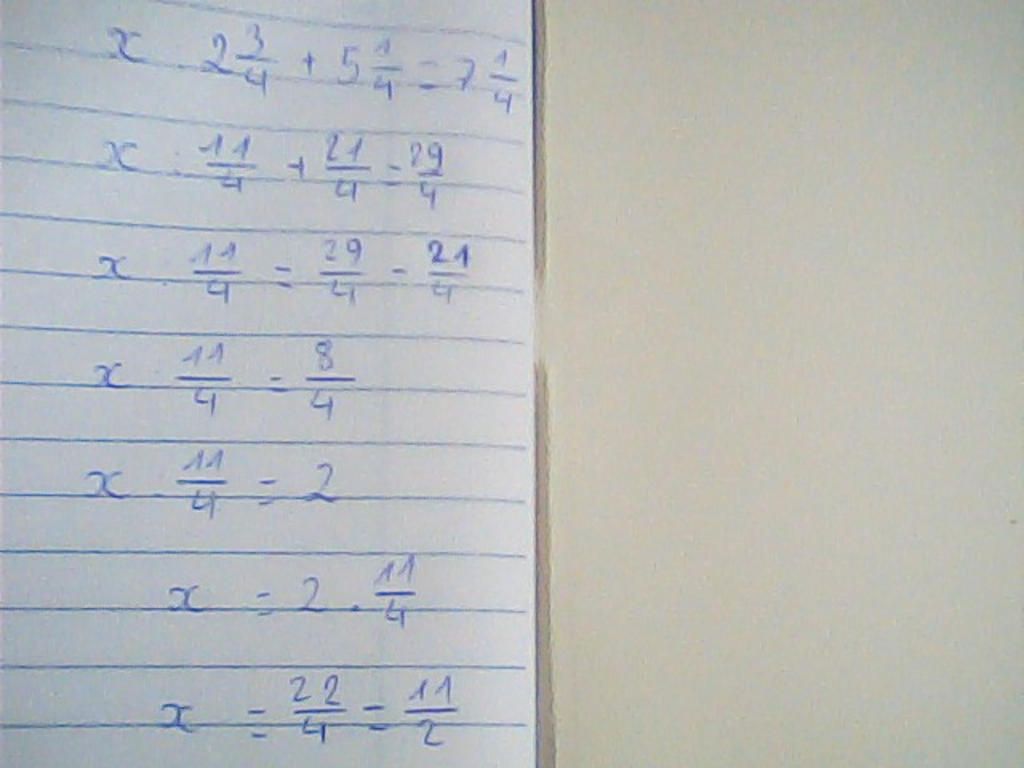 x . 2 3/4 + 5 1/4 = 7 1/4
x . 11/4 + 21/4 = 29/4
x . 11/4 = 29/4 - 21/4
x . 11/4 = 8/4
x . 11/4 = 2
x = 2 . 11/4
x = 22/4 = 11/2